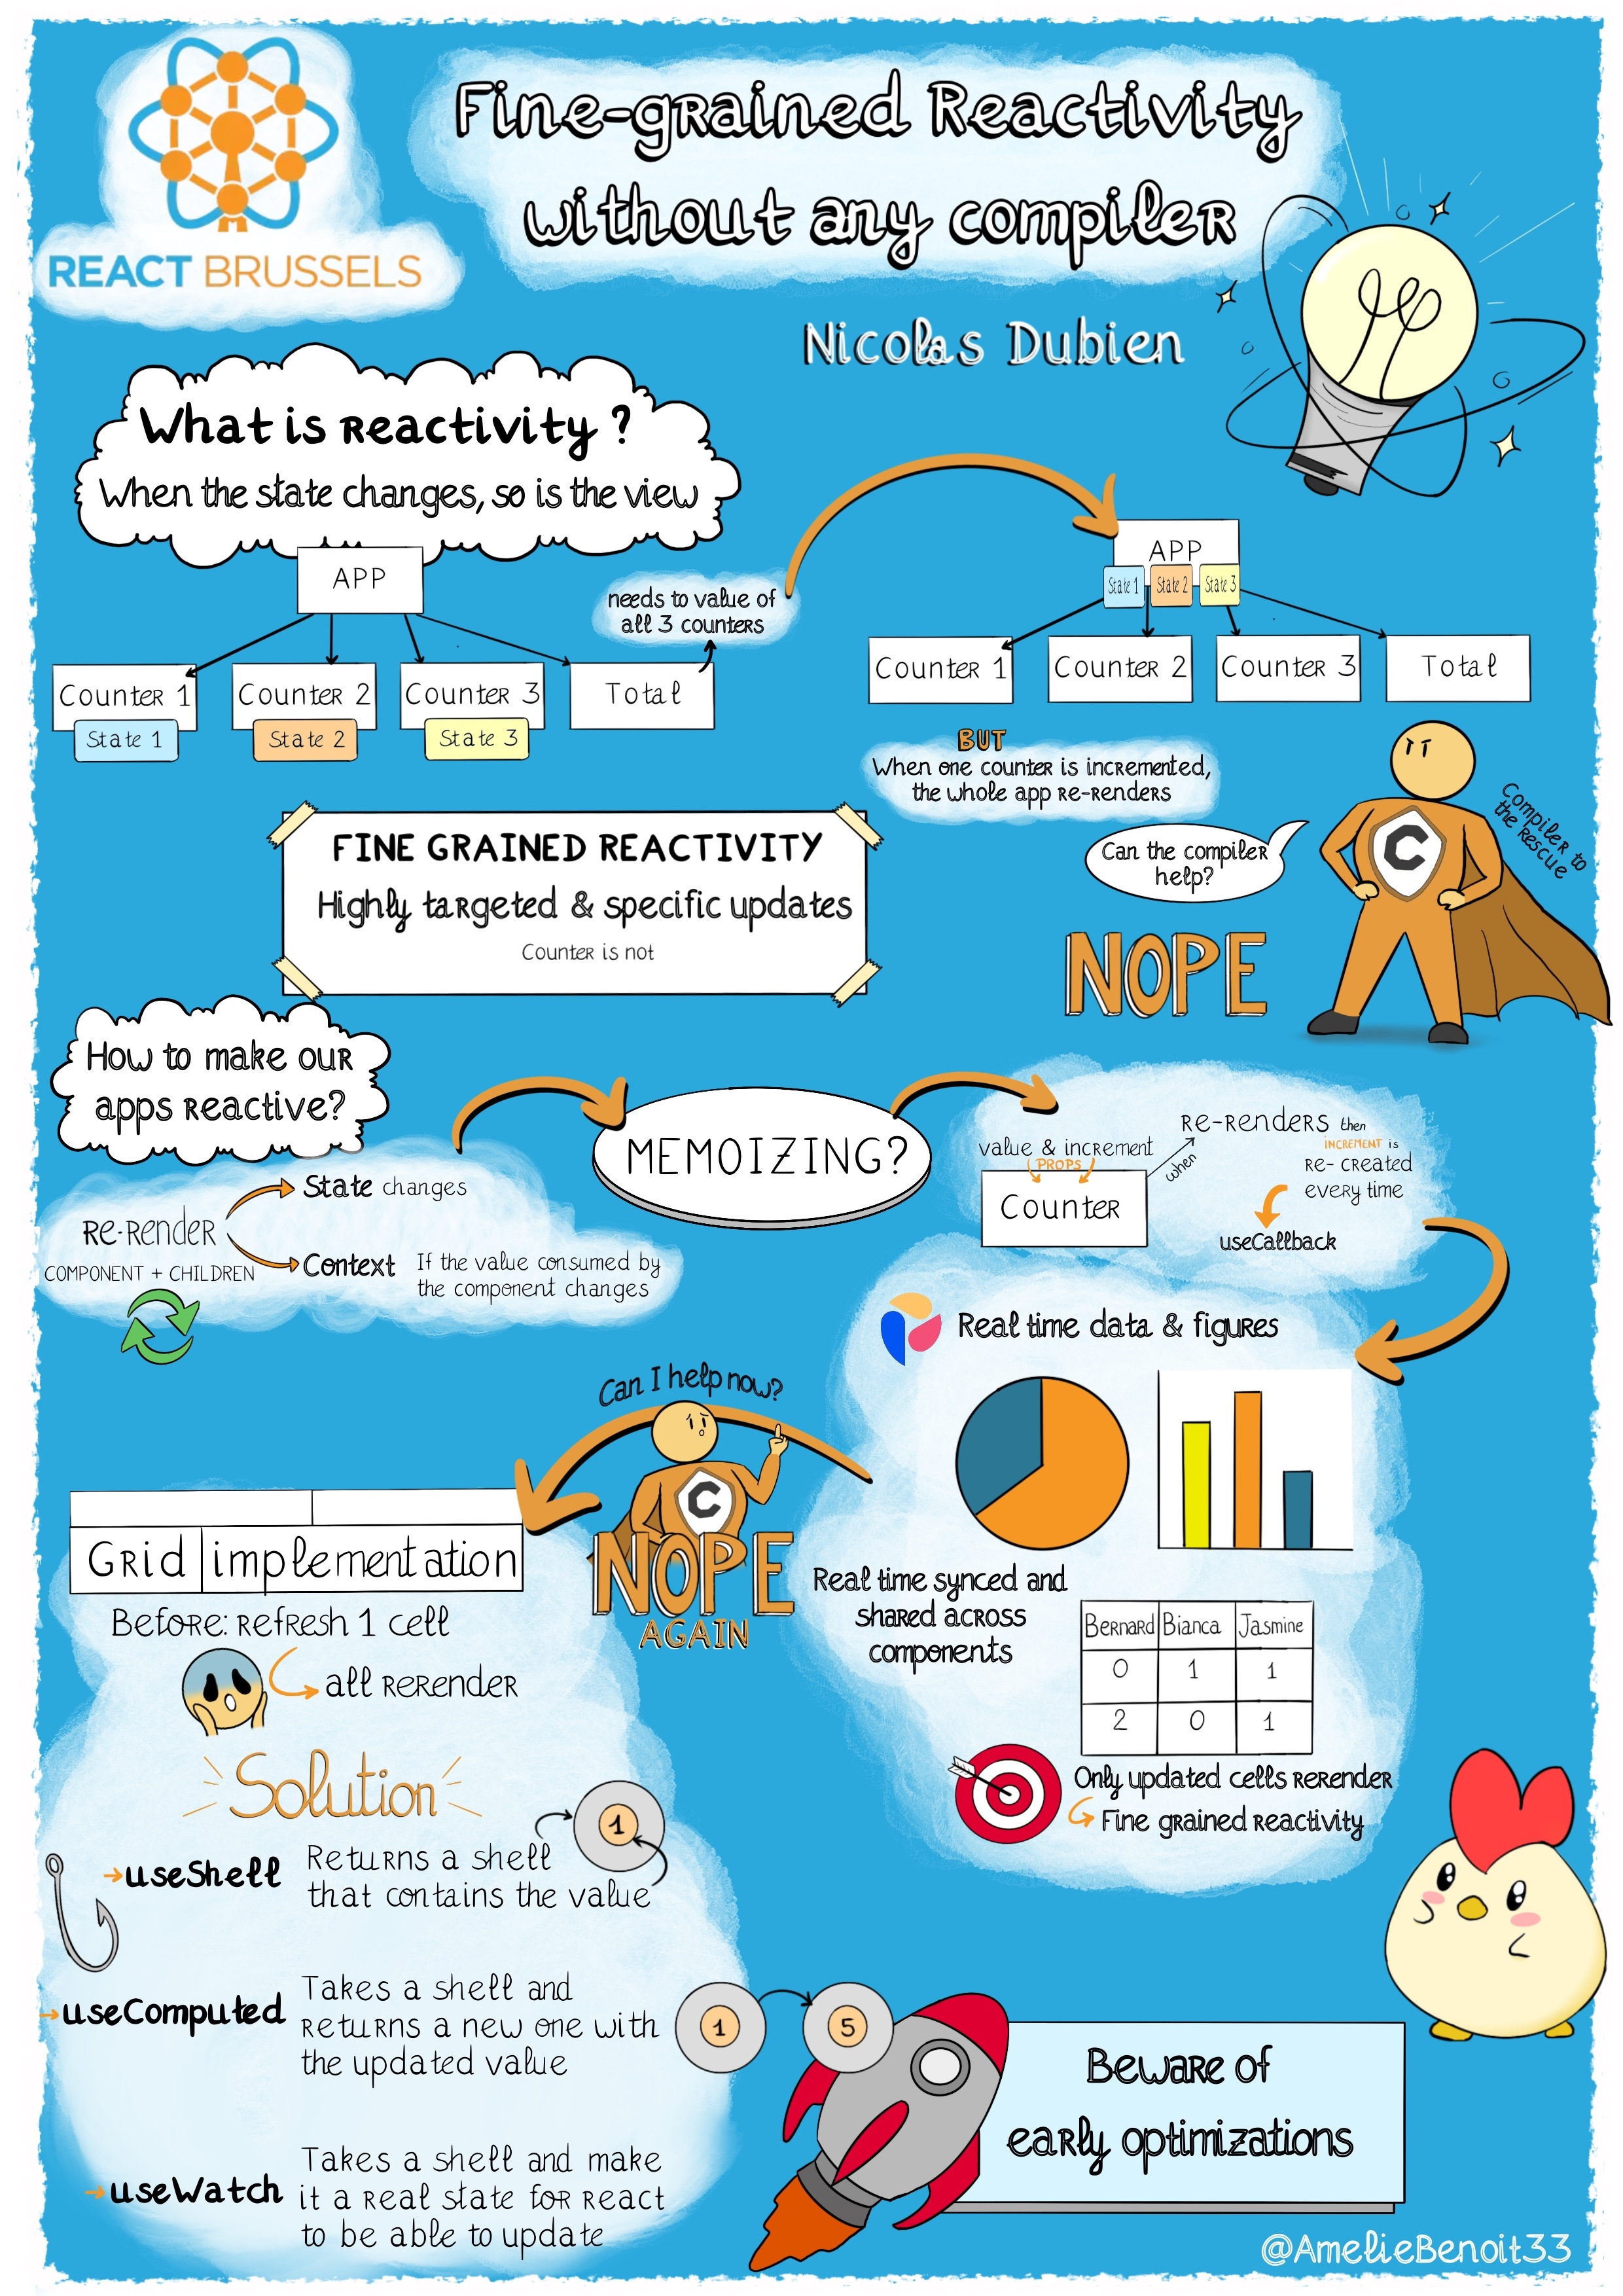 REACT BRUSSELS
Fine-grained Reactivity
without any compiler
Nicolas Dubien
What is reactivity ?
When the state changes, so is the view
APP
Counter 1
Counter 2
Counter 3
Total
State 1
State 2
State 3
needs to value of
all 3 counters
APP
State 1
State 2
State 3
Counter 1
Counter 2
Counter 3
Total
BUT
When one counter is incremented,
the whole app re-renders
Can the compiler
help?
Compiler to
the rescue
C
NOPE
FINE GRAINED REACTIVITY
Highly targeted & specific updates
Counter is not
How to make our
apps reactive?
Re-render
COMPONENT + CHILDREN
State changes
Context
If the value consumed by
the component changes
MEMOIZING?
value & increment
PROPS
Counter
when
Re-renders then
INCREMENT is
re-created
every time
useCallback
Real time data & figures
Real time synced and
shared across
components
Bernard Bianca Jasmine
0 1 1
2 0 1
Only updated cells rerender
Fine grained reactivity
Can I help now?
C
NOPE
AGAIN
Grid implementation
Before: refresh 1 cell
all rerender
Solution
useShell
Returns a shell
that contains the value
1
useComputed
Takes a shell and
returns a new one with
the updated value
1
5
useWatch
Takes a shell and make
it a real state for react
to be able to update
Beware of
early optimizations
@AmelieBenoit33